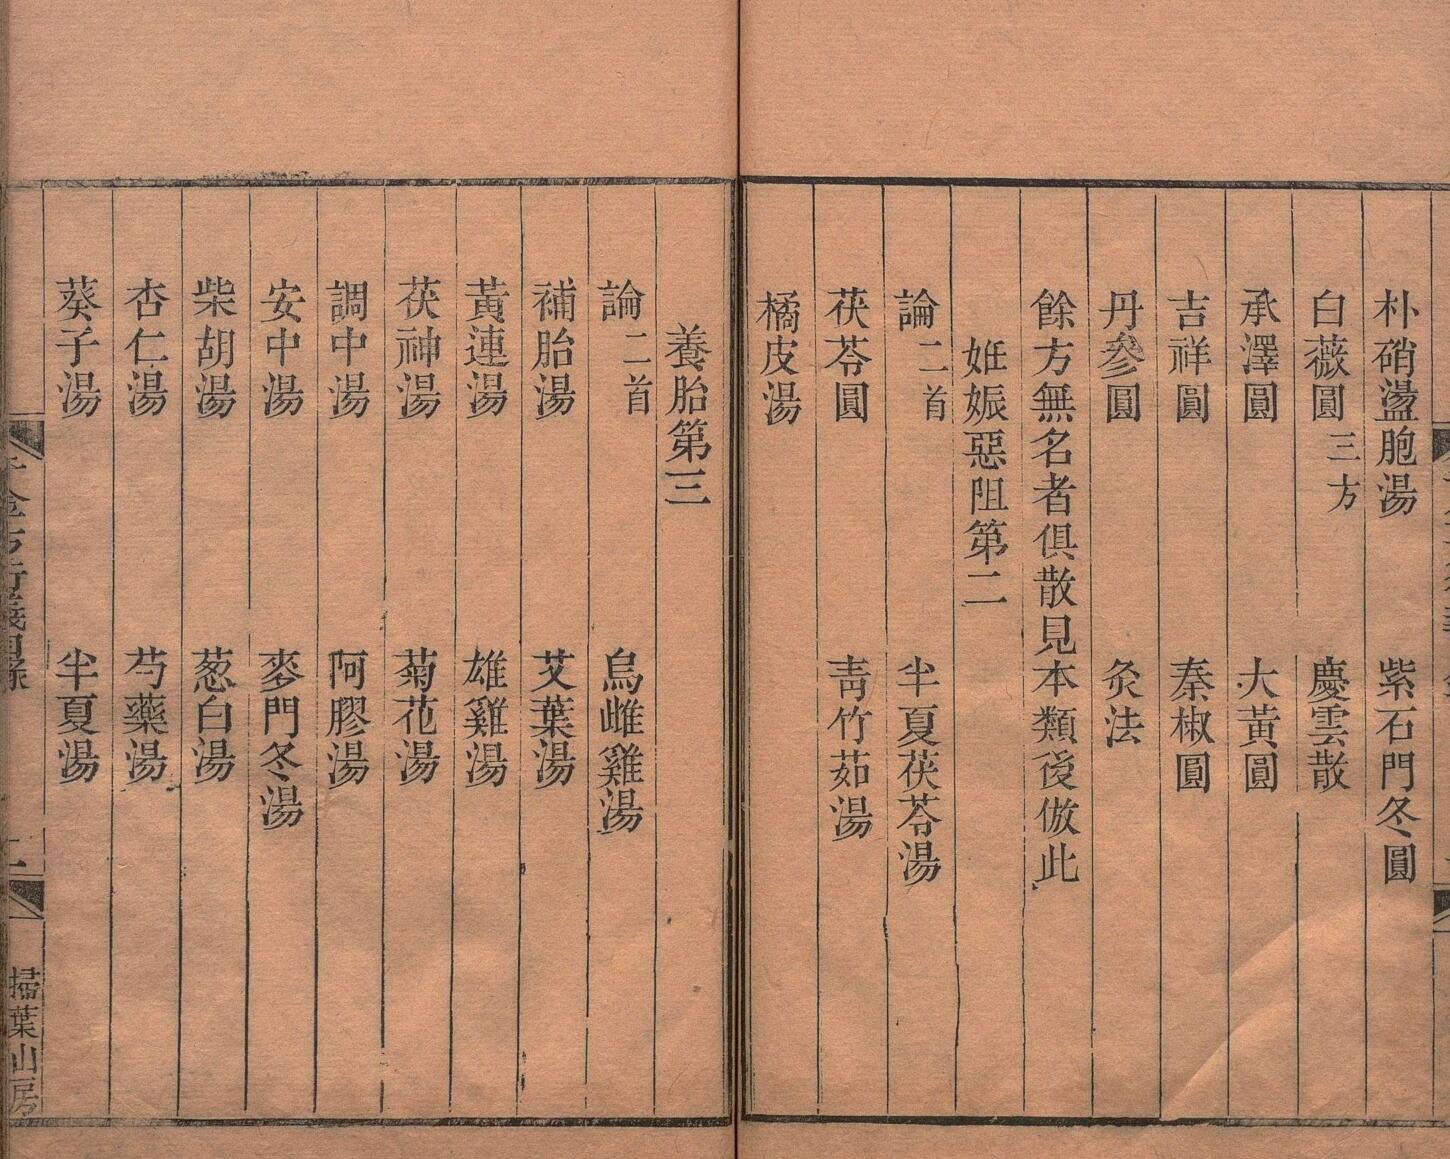 朴硝盪胞湯　紫石門冬圓
白薇圓三方　慶雲散
承澤圓　大黃圓
吉祥圓　秦椒圓
丹參圓　灸法
餘方無名者俱散見本類後倣此
妊娠惡阻第二
論二首　半夏茯苓湯
茯苓圓　青竹茹湯
橘皮湯
養胎第三
論二首　烏雌雞湯
補胎湯　艾葉湯
黃連湯　雄雞湯
茯神湯　菊花湯
調中湯　阿膠湯
安中湯　麥門冬湯
柴胡湯　葱白湯
杏仁湯　芍藥湯
葵子湯　半夏湯
千金方衍義目錄　二　掃葉山房